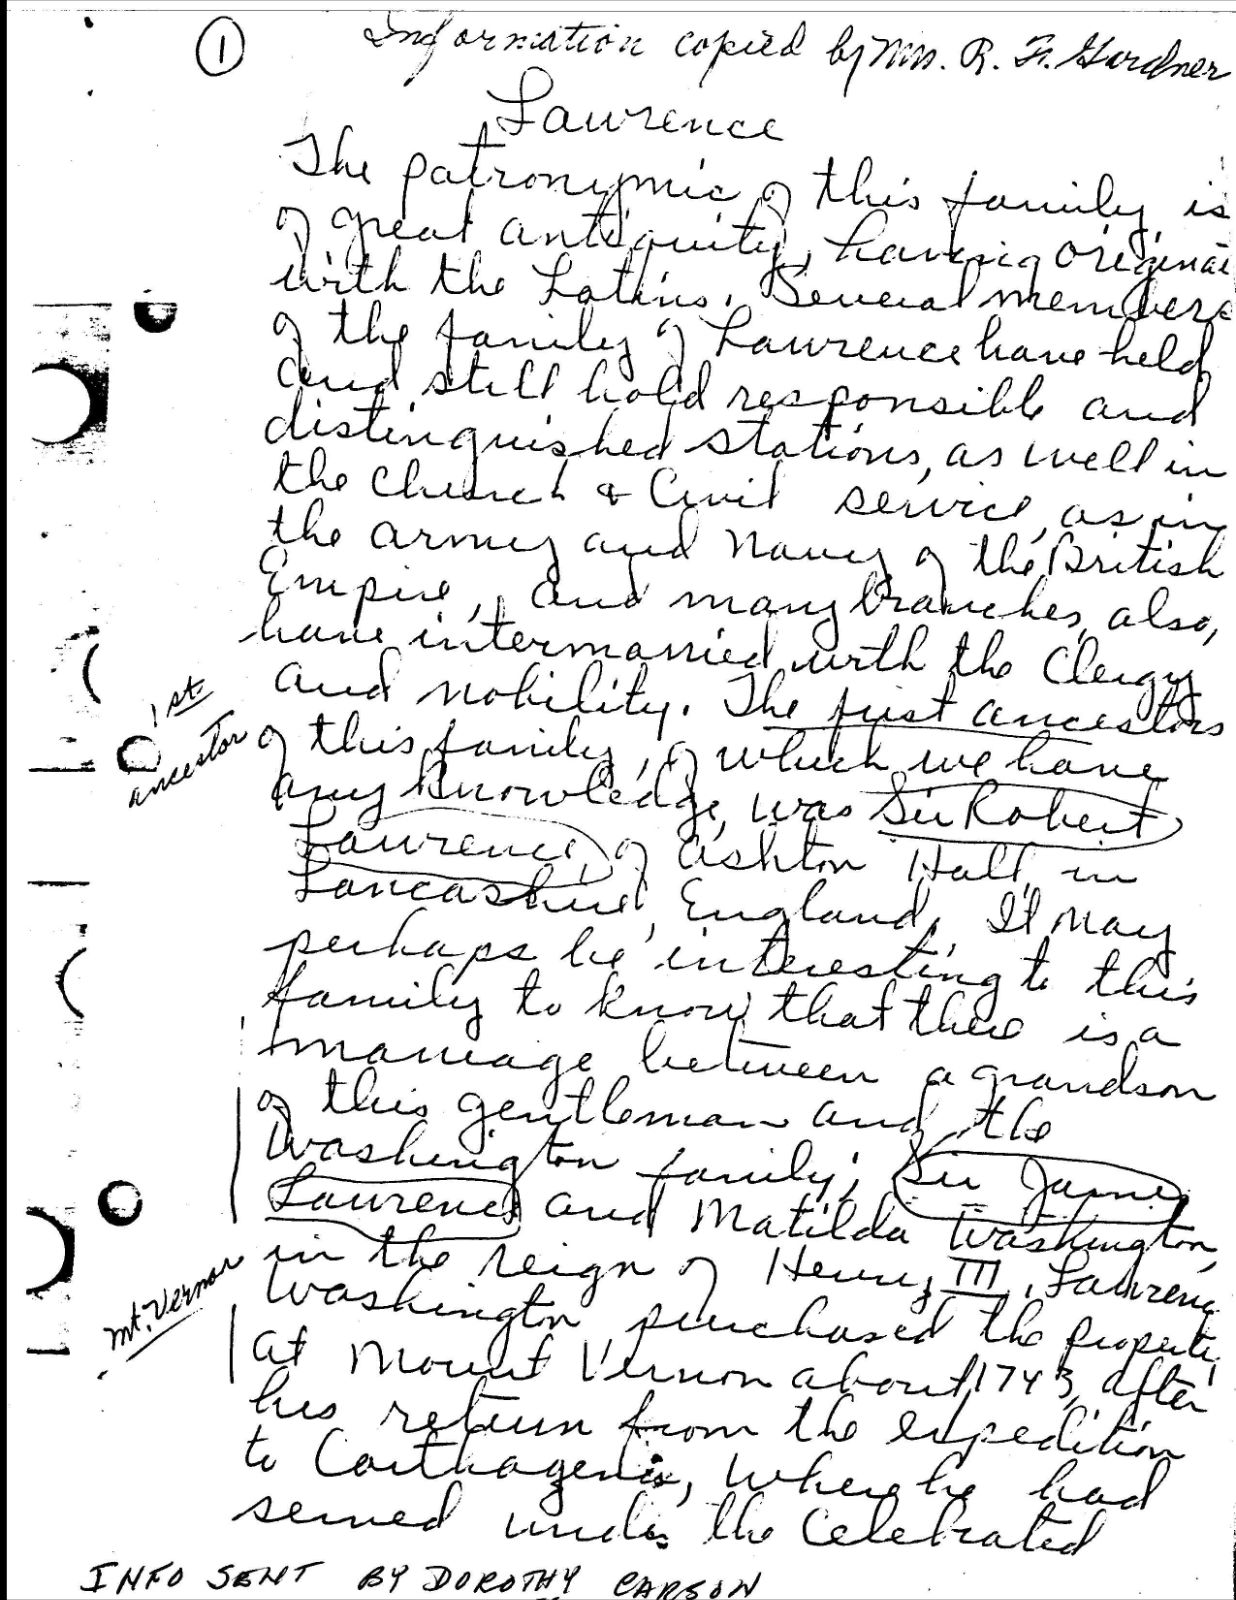 1
Information copied by Mrs. R. F. Gardner
Lawrence
The patronymic of this family is
of great antiquity, having originat
with the Latins. Several members
of the family of Lawrence have held
and still hold responsible and
distinguished stations, as well in
the church & Civil service, as in
the army and Navy of the British
Empire, and many branches, also,
have intermarried with the Clergy
and nobility. The first ancestors
1st
ancestor
of this family, of which we have
any knowledge, was Sir Robert
Lawrence, of Ashton Hall, in
Lancashire, England. It may
perhaps be interesting to this
family to know that there is a
marriage between a grandson
of this gentleman and the
Washington family; Sir James
Lawrence and Matilda Washington,
in the reign of Henry III. Lawrenc
Mt. Vernon
Washington purchased the property
at Mount Vernon about 1743, after
his return from the expedition
to Carthagenia, where he had
served under the celebrated
INFO SENT BY DOROTHY CARSON